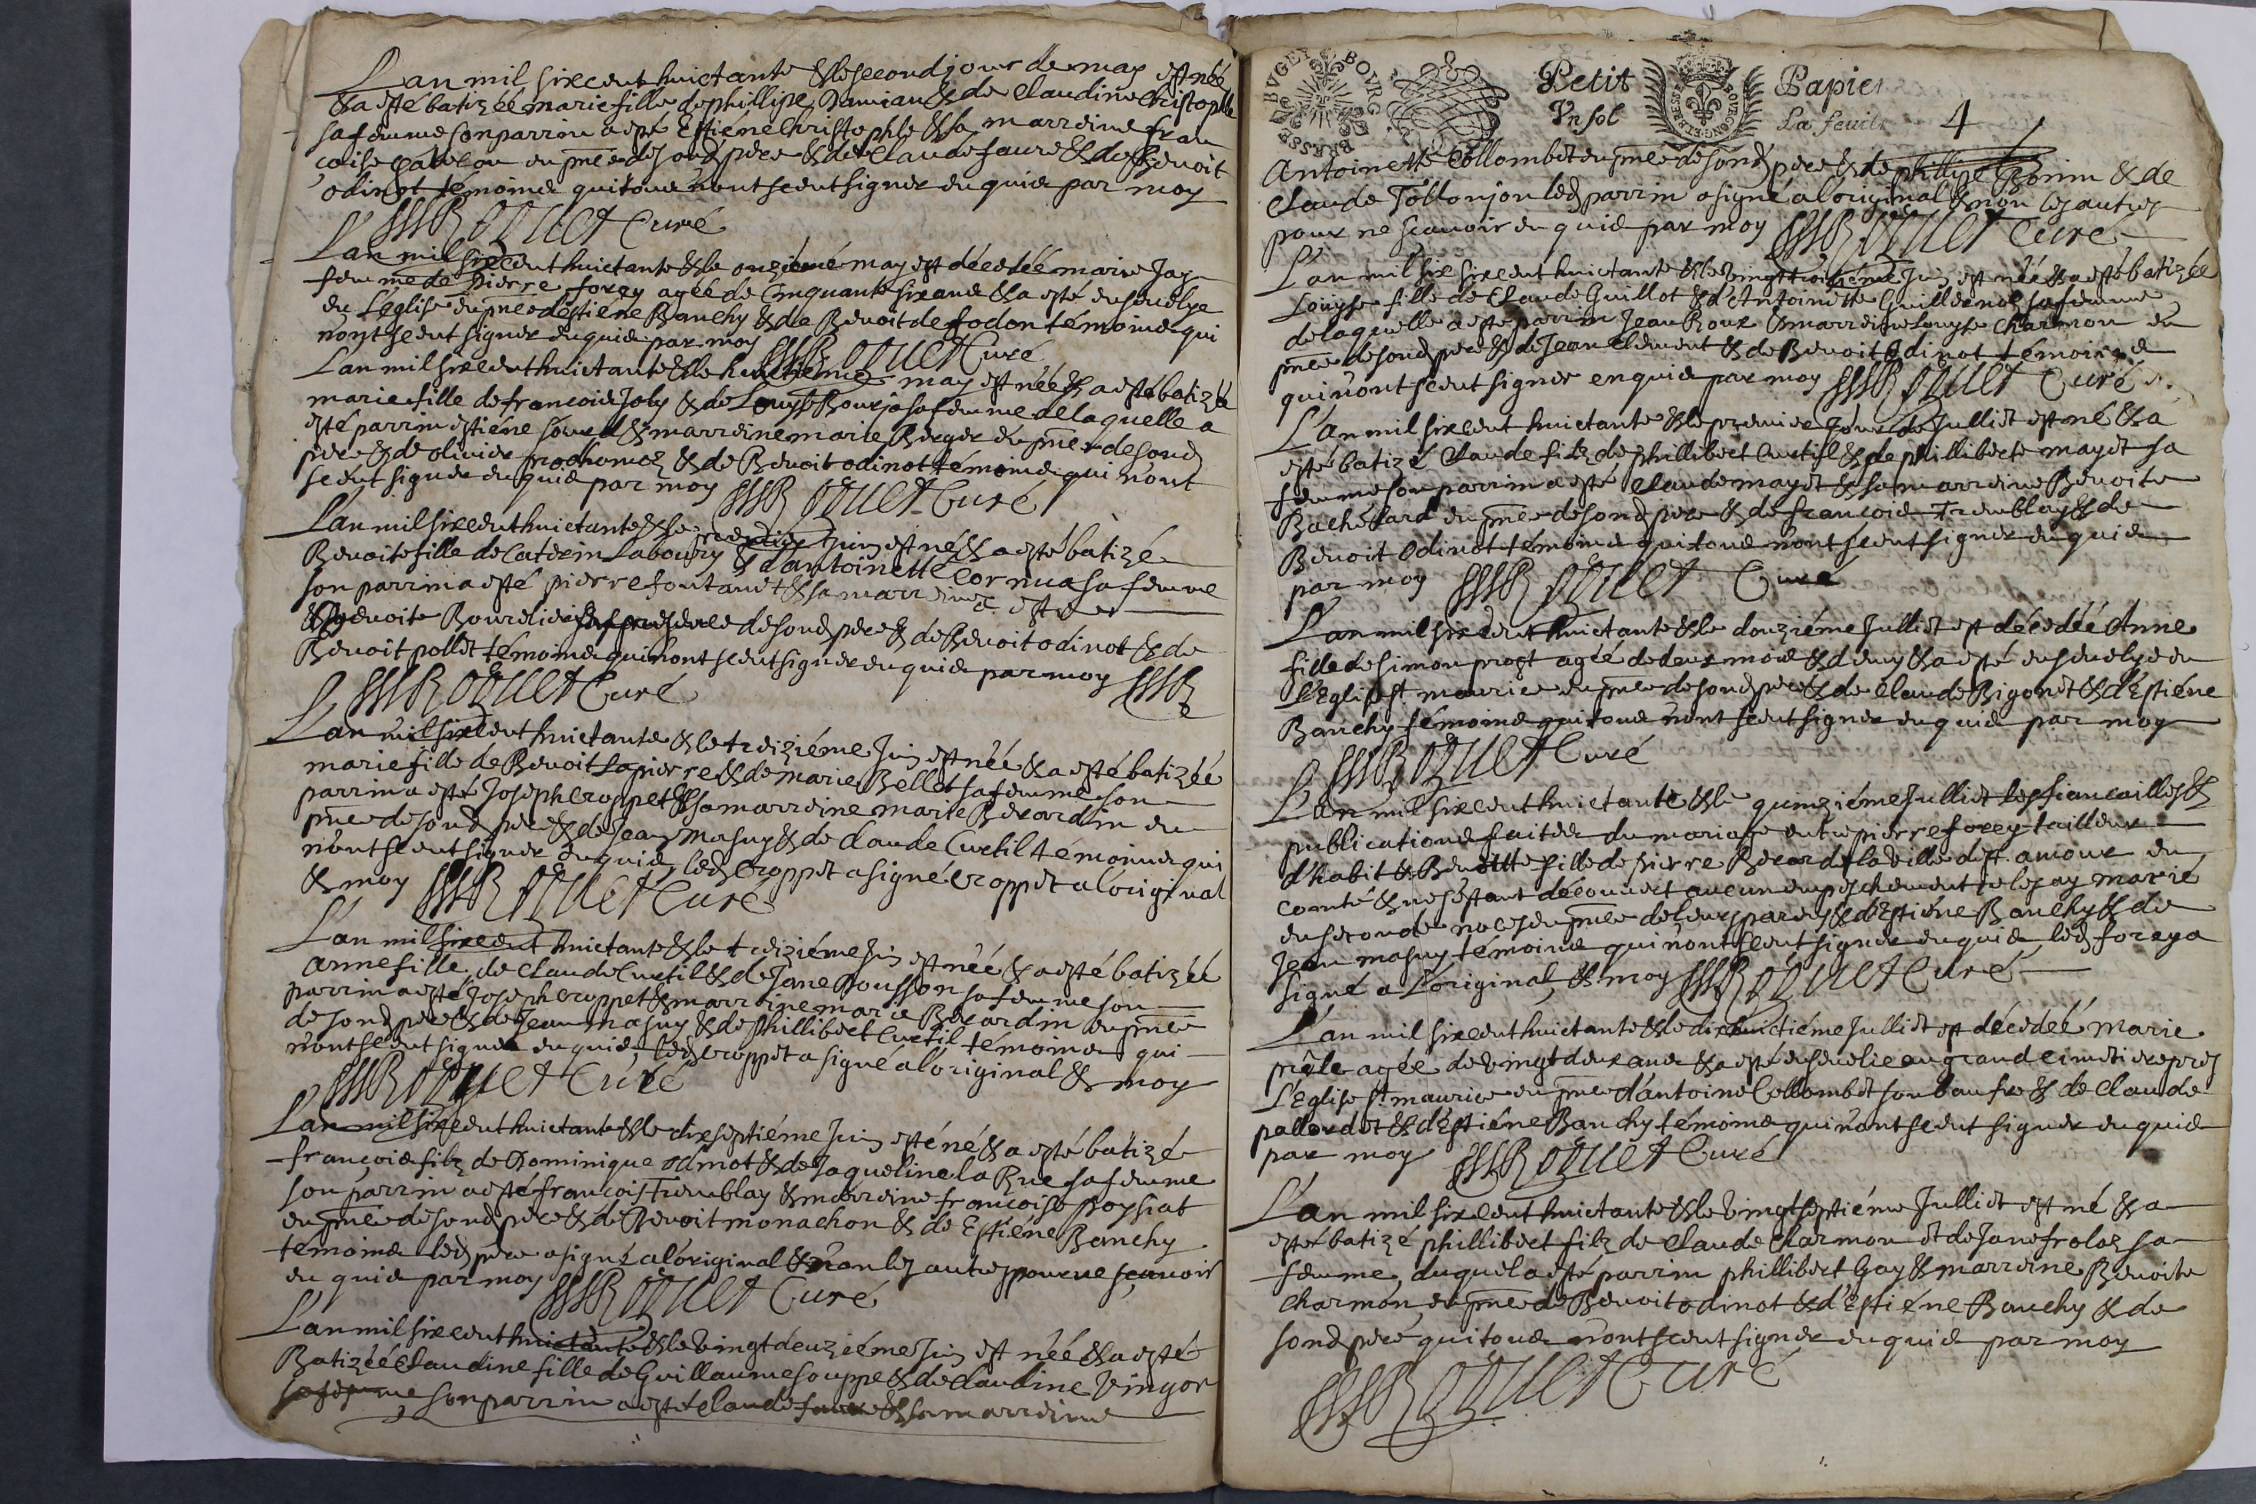 Lan mil sixcent huictante & le second jour de may est née
& a esté batizéé marie fille de phillipe Damian & de Claudine Christophle
sa femme son parrin a esté Estiéne Christophle & sa marreine fran
çoise en pnce de sond pere & de Claude faure & de Benoit
odinot témoins qui tous nont sceut signer en quis par moy
Roquet Curé
L'an mil sixcent huictante & le onziémé may est décedéé marie Jay
femme de Pierre forey agéé de Cinquante six ans & a esté ensevelye
en L'église en pnce d'estiéne Banchy & de Benoit de fodon témoins qui
nont sceut signer en quis par moy Roquet Curé
Lan mil sixcent huictante & le huictiéme may est néé & a esté batizéé
marie fille de francois Joly & de Louyse Bourja sa femme de laquelle a
esté parrin estiéne & marreine marie Berger en pnce de sond
pere & de olivier prochomoz & de Benoit odinot témoins qui n'ont
sceut signer en quis par moy Roquet Curé
Lan mil sixcent huictante & le premier Juin est né & a esté batizé
Benoite fille de Caterin Laboury & d'antoinette Cornua sa femme
son parrin a esté pierre fontanet & sa marreine a esté
Benoite Bourdier de sond pere & de Benoit odinot & de
Benoit pollet témoins qui nont sceut signer en quis par moy
Roquet Curé
Lan mil sixcent huictante & le treiziéme Juin est néé & a esté batizéé
marie fille de Benoit Lapierre & de marie Bellot sa femme son
parrin a esté Joseph Croppet & sa marreine marie Berardin en
pnce de sond pere & de Jean masuy & de Claude Curtil témoins qui
n'ont sceut signer en quis, led Croppet a signé Croppet a l'original
& moy Roquet Curé
L'an mil sixcent huictante & le treiziéme Juin est néé & a esté batizéé
anne fille de Claude Curtil & de Jane Rousson sa femme son
parrin a esté Joseph Croppet & marreine marie Berardin en pnce
de sond pere & de Jean masuy & de phillibert Curtil témoins qui
n'ont sceut signer en quis, led Croppet a signé a l'original & moy
Roquet Curé
L'an mil sixcent huictante & le dixseptiéme Juin est né & a esté batizé
françois filz de Dominique odinot & de Jaqueline la Rue sa femme
son parrin a esté françois Tremblay & marreine françoise poysiat
en pnce de sond pere & de Benoit monachon & de Estiéne Banchy
témoins led pere a signé a l'original & non les autres pour ne sçavoir
en quis par moy Roquet Curé
L'an mil sixcent huictante & le vingt deuziéme Juin est néé & a esté
Batizéé Claudine fille de Guillaume souppe & de Claudine Vingon
sa femme son parrin a esté Claude faure & sa marreine
BRESSE BVGEY BOVRG
Petit Papier
Vn sol La feuille 4
Antoinette Collombet en pnce de sond pere & de phillipe Bonin & de
Claude Tollonjon led parrin a signé a l'original & non les autres
pour ne scavoir en quis par moy Roquet Curé
L'an mil six sixcent huictante & le vingt troisiéme Juin est néé & a esté batizéé
Louyse fille de Claude Guillot & d'Antoinette Guillermoz sa femme
de laquelle a esté parrin Jean Roux & marreine Louyse Charmon en
pnce de sond pere & de Jean Clement & de Benoit Odinot témoins
qui n'ont sceut signer en quis par moy Roquet Curé
L'an mil sixcent huictante & le premier Jour de Julliet est né & a
esté batizé Claude filz de phillibert Curtil & de philliberte mayet sa
femme son parrin a esté Claude mayet & sa marreine Benoite
Bachélard en pnce de sond pere & de francois Tremblay & de
Benoit Odinot témoins qui tous nont sceut signer en quis
par moy Roquet Curé
L'an mil sixcent huictante & le douziéme Julliet est décedéé Anne
fille de simon progt agéé de deux mois & demy & a esté ensevelye en
L'église St maurice en pnce de sond pere & de Claude Bigonet & d'Estiéne
Banchy témoins qui tous n'ont sceut signer en quis par moy
Roquet Curé
L'an mil sixcent huictante & le quinziéme Julliet les fiancailles &
publications faites du mariage entre pierre forey tailleur
d'habit & Benoitte fille de pierre Berard de la ville de st amour en
comté & ne s'estant découvert aucun empeschement Je les ay marié
en seconde noces en pnce de leurs parens & d'Estiéne Banchy & de
Jean masuy témoins qui n'ont sceut signer en quis, led forey a
signé a L'original, & moy Roquet Curé
L'an mil sixcent huictante & le dixhuictiéme Julliet est décedéé marie
agéé de vingt deux ans & a esté ensevelie au grand cimetiere pres
L'église St maurice en pnce d'antoine Collombet son beaufre & de Claude
pallordet & d'Estiéne Banchy témoins qui n'ont sceut signer en quis
par moy Roquet Curé
L'an mil sixcent huictante & le vingtseptiéme Julliet est né & a
esté batizé phillibert filz de Claude Charmon et de Jane froloz sa
femme, duquel a esté parrin phillibert Gay & marreine Benoite
Charmon, en pnce de Benoit odinot & d'Estiéne Banchy & de
sond pere qui tous n'ont sceut signer en quis par moy
Roquet Curé